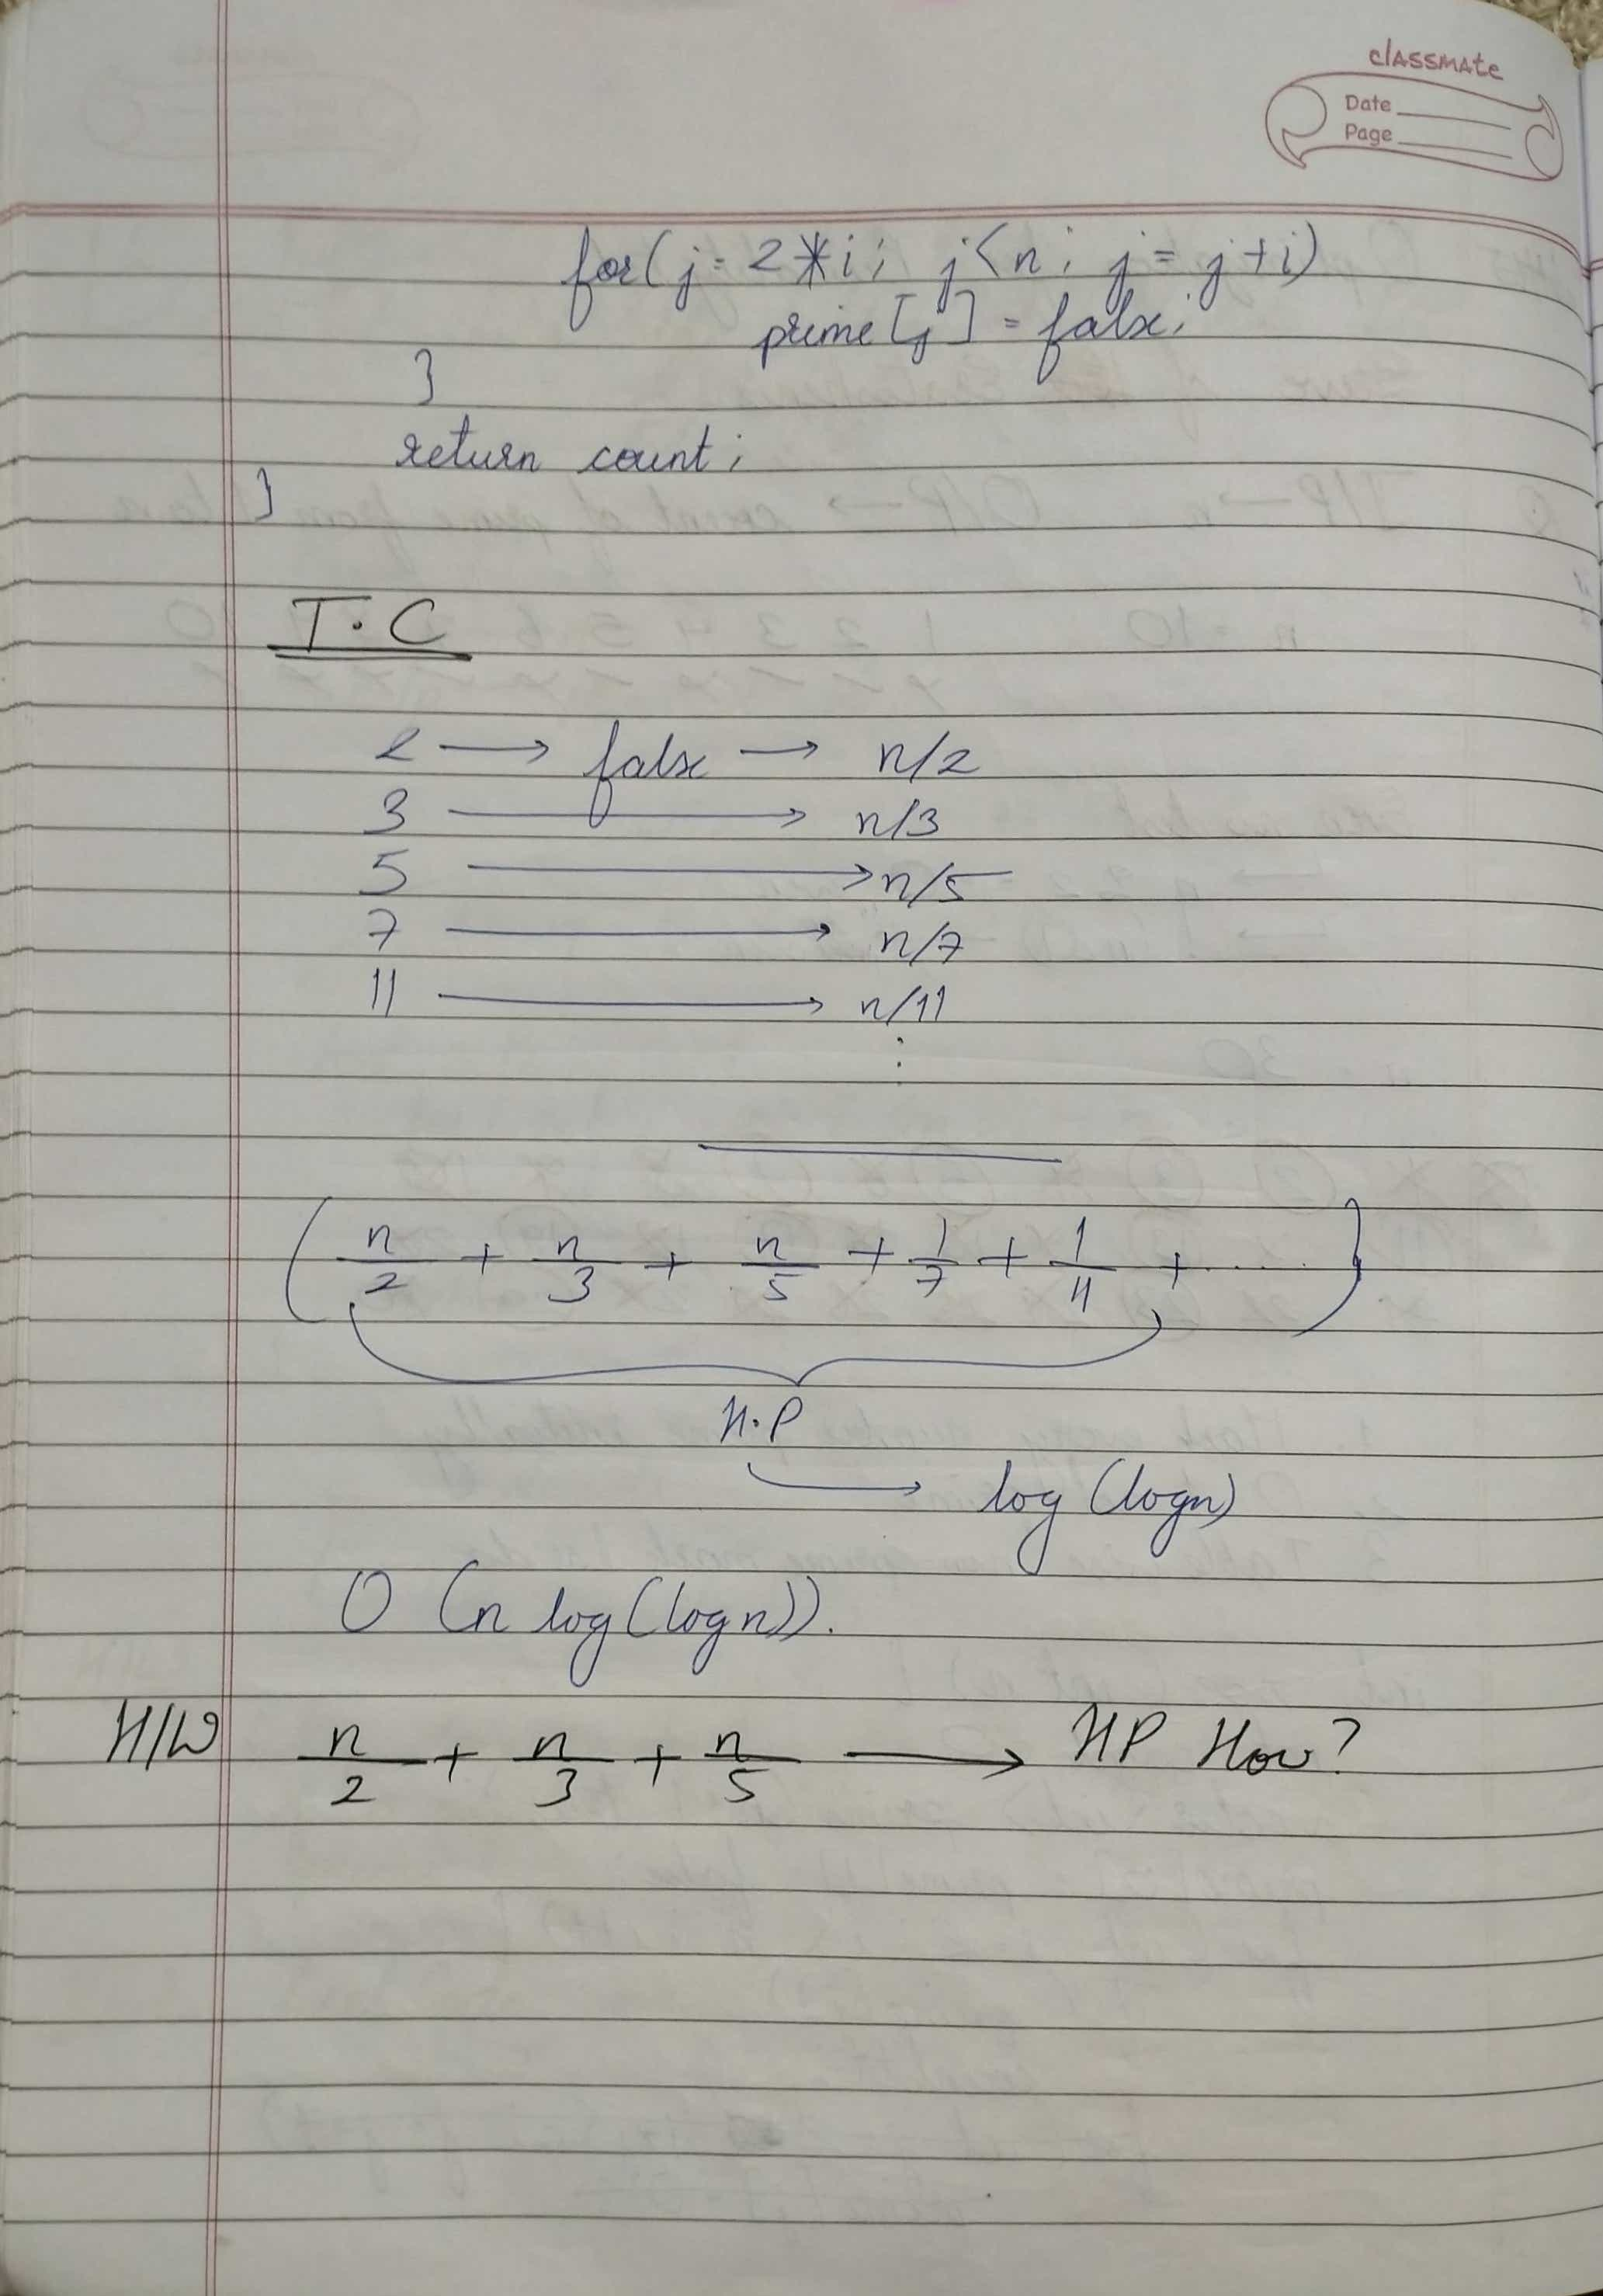 classmate
Date
Page
for(j = 2*i; j<n; j = j+i)
prime[j] = false;
}
return count;
}
T.C
2 → false → n/2
3 → n/3
5 → n/5
7 → n/7
11 → n/11
⋮
( n/2 + n/3 + n/5 + 1/7 + 1/11 + ..... )
H.P
→ log (logn)
O (n log(logn)).
H/W n/2 + n/3 + n/5 → HP How?